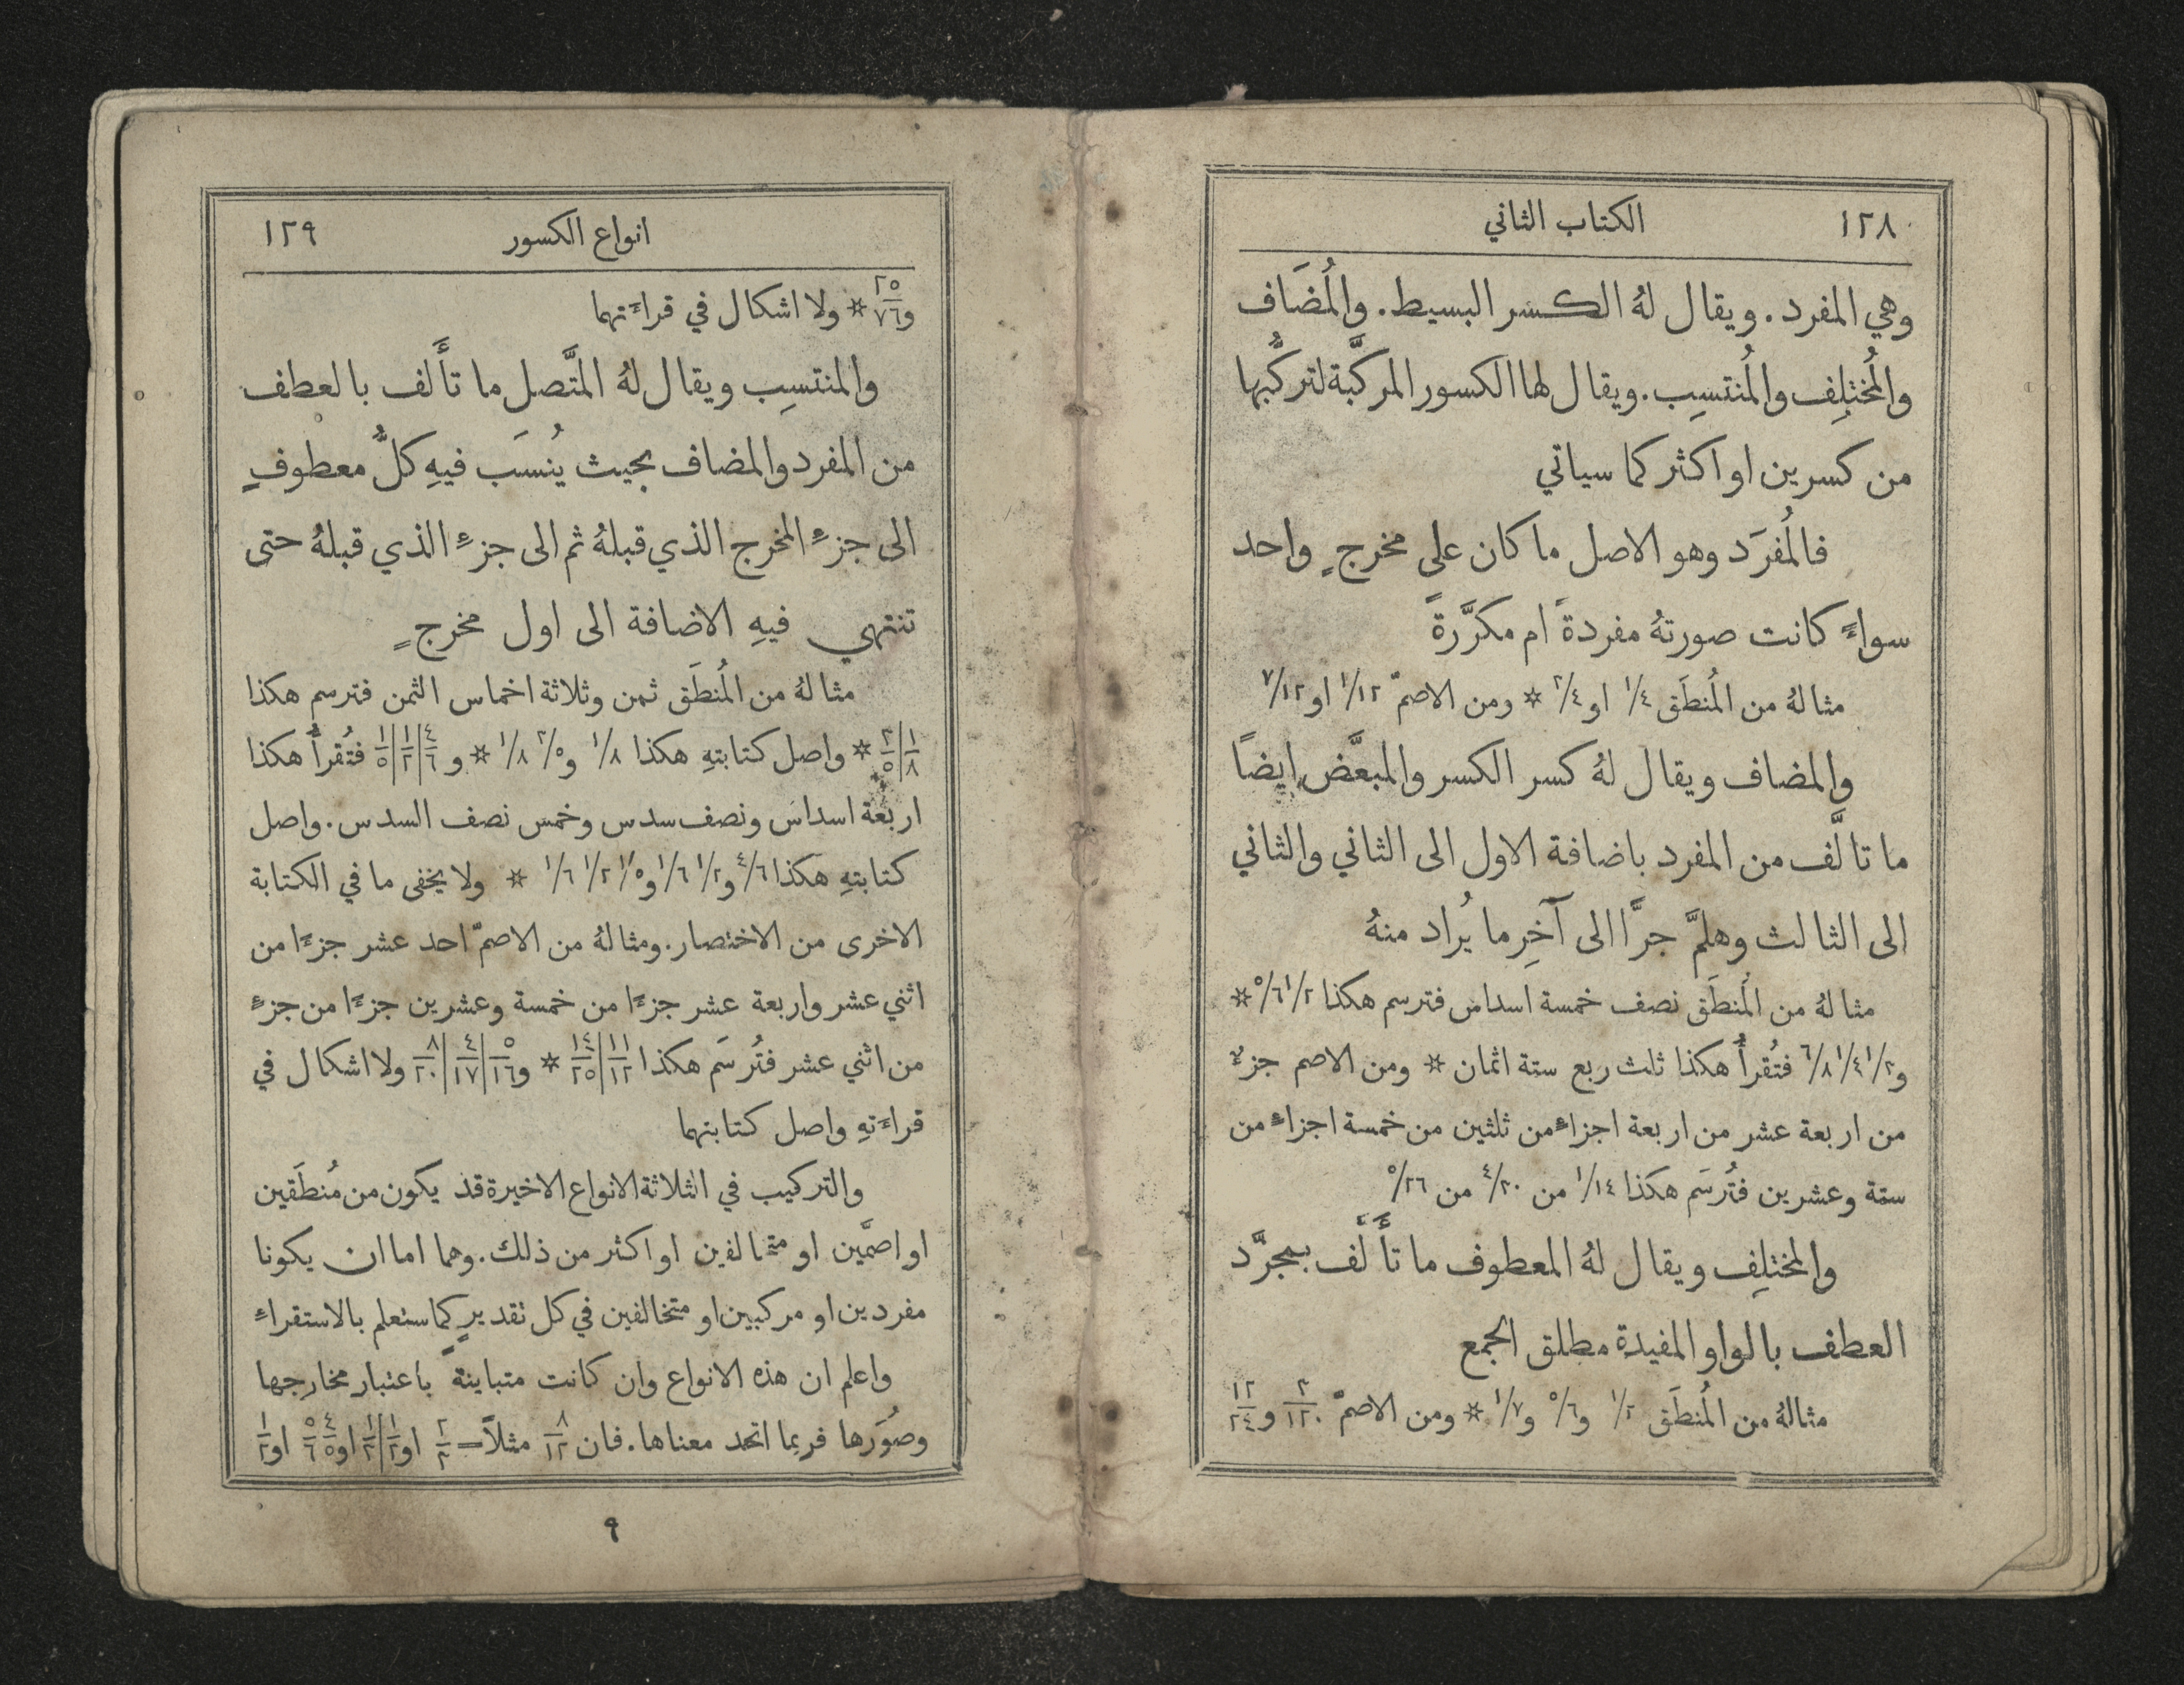 ١٢٨ الكتاب الثاني
وهي المفرد. ويقال لهُ الكسر البسيط. والمُضَاف
والمُختلِف والمُنتسِب. ويقال لها الكسور المركَّبة لتركُّبها
من كسرين او اكثر كما سياتي
فالمُفرَد وهو الاصل ما كان على مخرجٍ واحد
سواءٌ كانت صورتهُ مفردةً ام مكرَّرةً
مثالهُ من المُنطَق ١/٤ او ٢/٤ * ومن الاصمّ ١/١٢ او ٧/١٢
والمضاف ويقال لهُ كسر الكسر والمبعَّض ايضاً
ما تالَّف من المفرد باضافة الاول الى الثاني والثاني
الى الثالث وهلمَّ جرَّا الى آخِر ما يُراد منهُ
مثالهُ من المُنطَق نصف خمسة اسداس فترسم هكذا ١/٢ ٥/٦ *
و١/٣ ١/٤ ٦/٨ فتُقرأُ هكذا ثلث ربع ستة اثمان * ومن الاصم جزءٌ
من اربعة عشر من اربعة اجزاءٍ من ثلثين من خمسة اجزاءٍ من
ستة وعشرين فتُرسَم هكذا ١/١٤ من ٤/٣٠ من ٥/٢٦
والمختلِف ويقال لهُ المعطوف ما تأَلَّف بمجرَّد
العطف بالواو المفيدة مطلق الجمع
مثالهُ من المُنطَق ١/٢ و٥/٦ و١/٧ * ومن الاصمّ ٣/١٢٠ و١٢/٢٤
انواع الكسور ١٢٩
و٢٥/٧٦ * ولا اشكال في قراءَتهما
والمنتسِب ويقال لهُ المتَّصل ما تأَلف بالعطف
من المفرد والمضاف بحيث يُنسَب فيهِ كلُّ معطوفٍ
الى جزءِ المخرج الذي قبلهُ ثم الى جزءِ الذي قبلهُ حتى
تنتهي فيهِ الاضافة الى اول مخرجٍ
مثالهُ من المُنطَق ثمن وثلاثة اخماس الثمن فترسم هكذا
١/٨|٣/٥ * واصل كتابتهِ هكذا ١/٨ و٣/٥ ١/٨ * و ٤/٦|١/٢|١/٥ فتُقرأُ هكذا
اربعة اسداس ونصف سدس وخمس نصف السدس. واصل
كتابتهِ هكذا ٤/٦ و١/٢ ١/٦ و١/٥ ١/٢ ١/٦ * ولا يخفى ما في الكتابة
الاخرى من الاختصار. ومثالهُ من الاصمّ احد عشر جزءًا من
اثني عشر واربعة عشر جزءًا من خمسة وعشرين جزءًا من جزءٍ
من اثني عشر فتُرسَم هكذا ١١/١٢|١٤/٢٥ * و٥/١٦|٤/١٧|٨/٣٠ ولا اشكال في
قراءَتهِ واصل كتابتهما
والتركيب في الثلاثة الانواع الاخيرة قد يكون من مُنطَقين
او اصمَّين او متخالفين او اكثر من ذلك. وهما اما ان يكونا
مفردين او مركبين او متخالفين في كل تقديرٍ كما ستعلم بالاستقراءِ
واعلم ان هذه الانواع وان كانت متباينةً باعتبار مخارجها
وصُوَرها فربما اتحد معناها. فان ٨/١٢ مثلاً = ٢/٣ او ١/٢|١/٣ او ٤/٥ ٥/٦ او ١/٢
٩